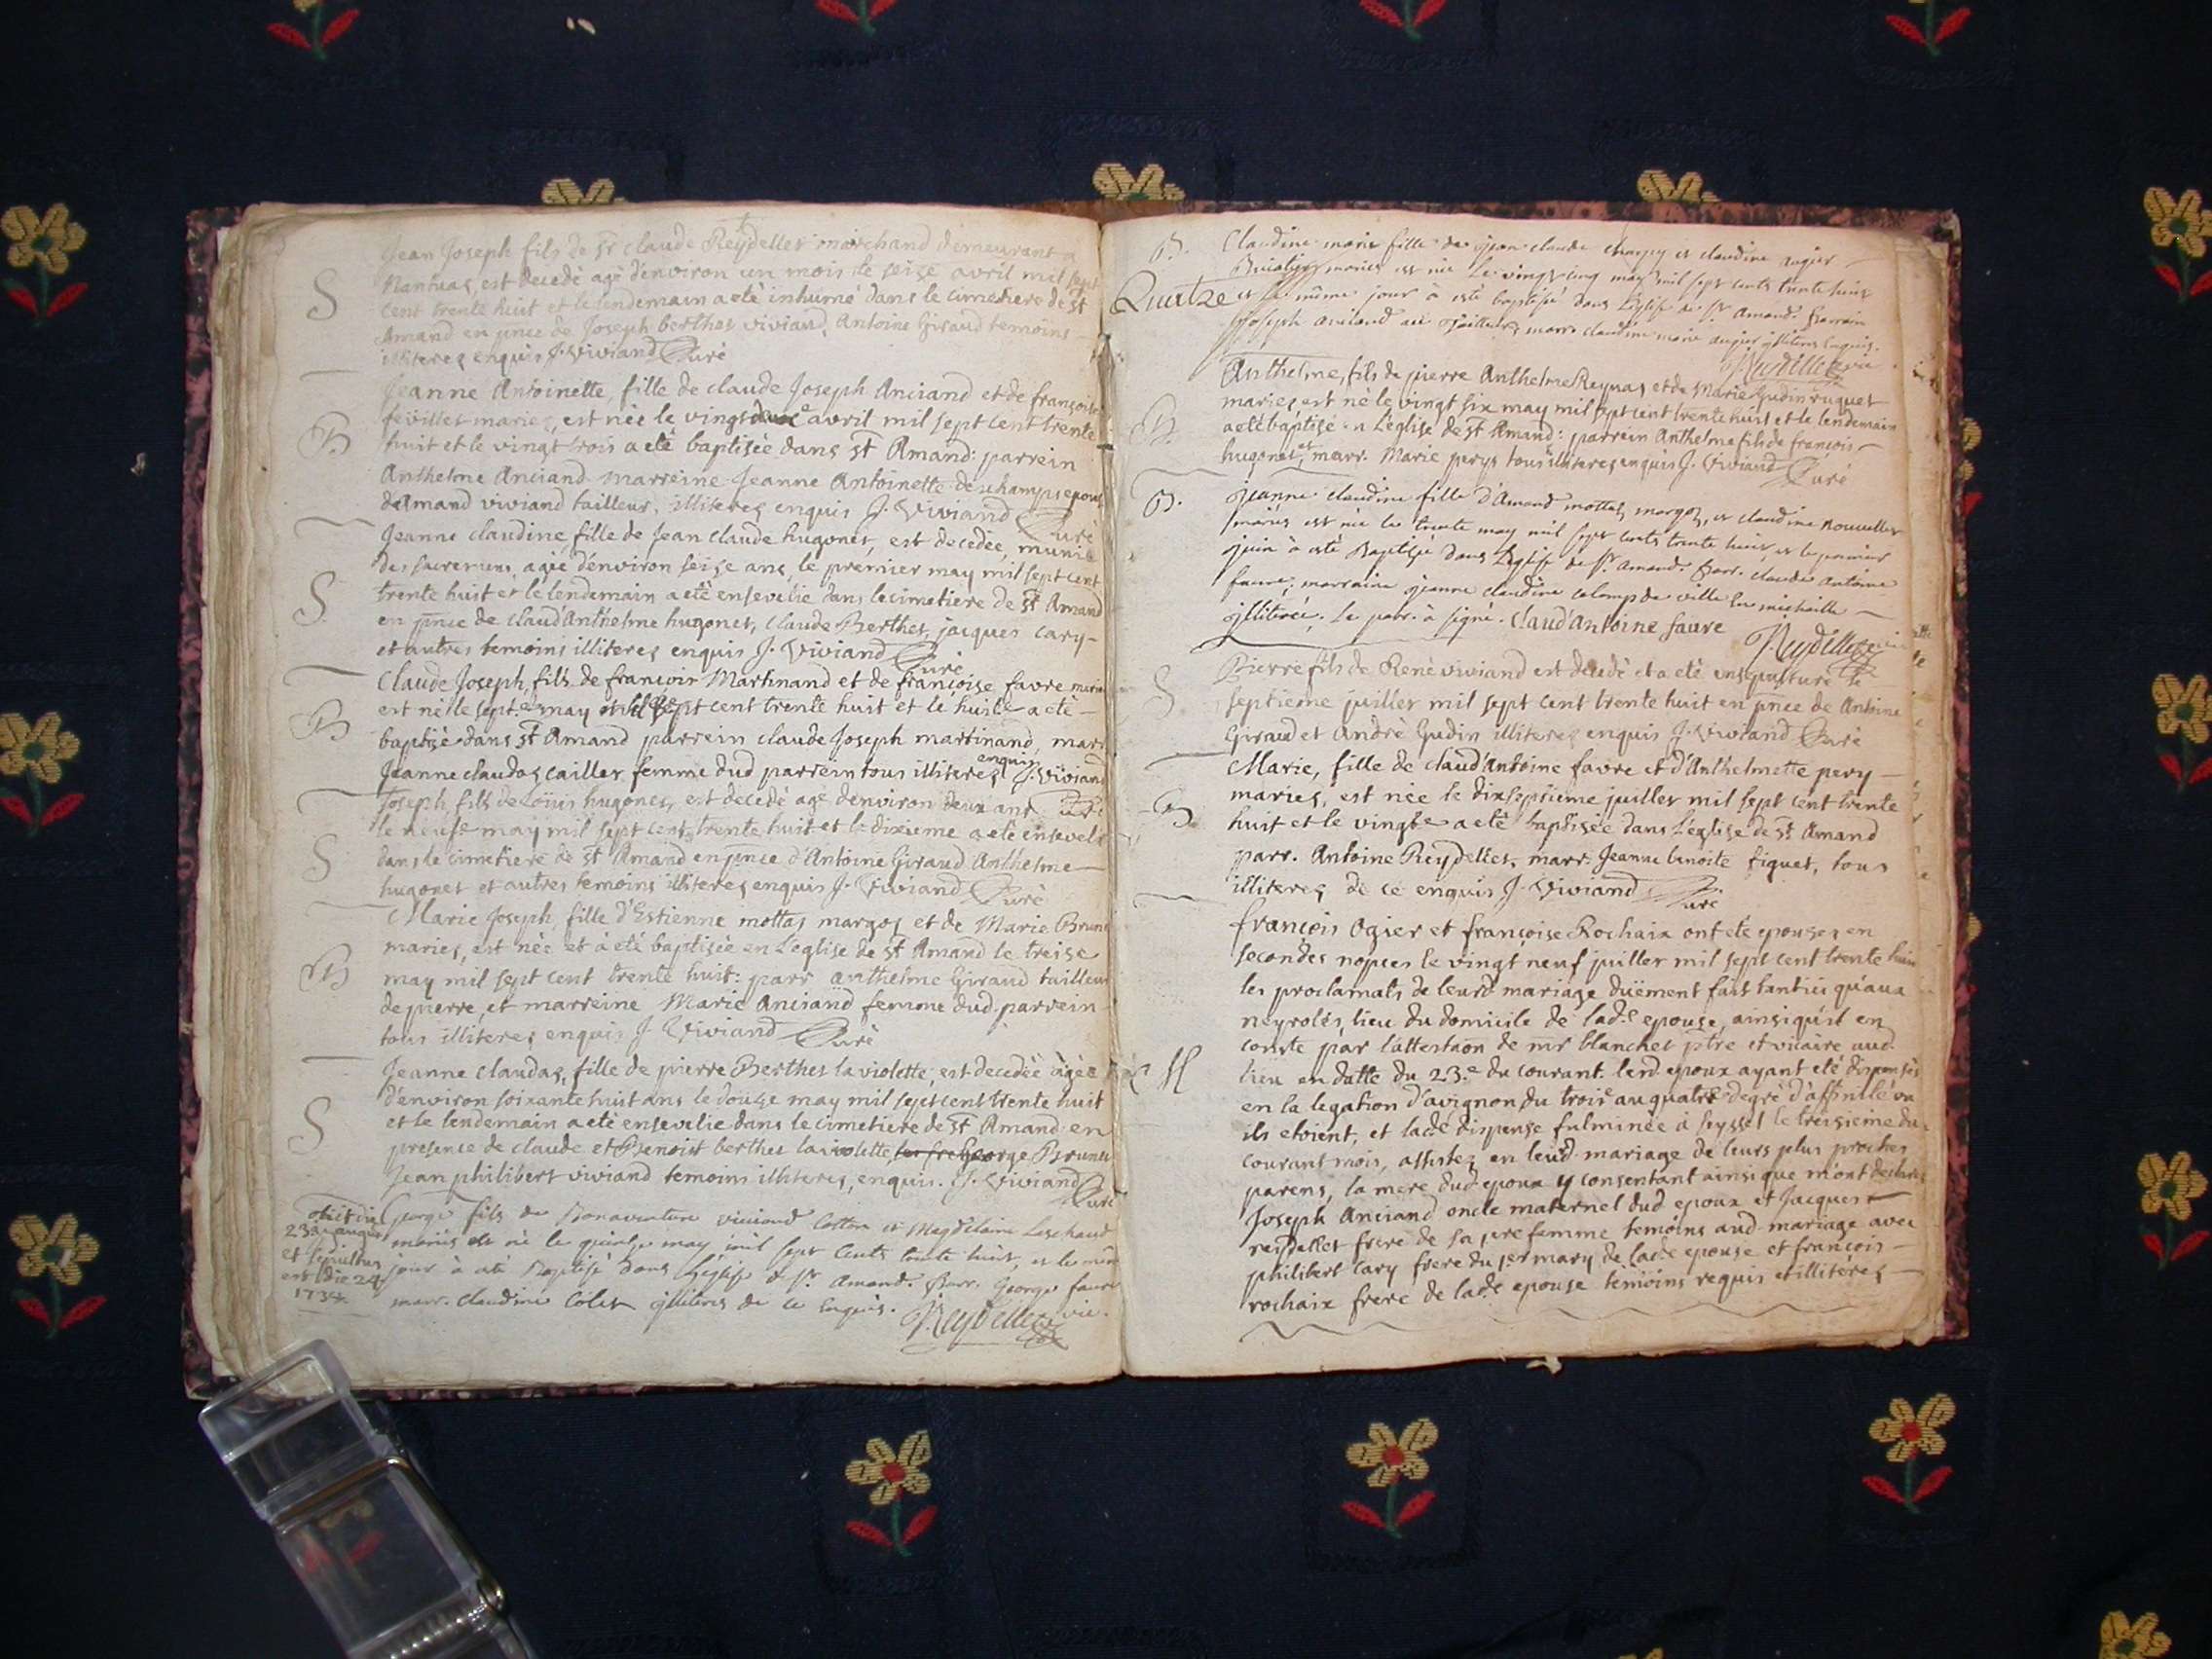 Jean Joseph fils de Sr claude Reydellet marchand demeurant a
Nantuas, est decedé agé d'environ un mois le seise avril mil sept
cent trente huit et le lendemain a eté inhumé dans le cimetiere de St
S
Amand en pnce de Joseph berthet viviand, Antoine Giraud temoins
illiteres enquis J. Viviand Curé
Jeanne Antoinette, fille de claude Joseph Anciand et de françoise
feüillet mariez, est née le vingt avril mil sept cent trente
B
huit et le vingt trois a eté baptisée dans St Amand: parrein
Anthelme Anciand marreine Jeanne Antoinette deschamps epouse
d'Amand viviand tailleur, illiteres enquis J. Viviand Curé
Jeanne claudine, fille de Jean claude hugonet, est decedée, munie
des sacremens, agée d'environ seise ans, le premier may mil sept cent
S
trente huit et le lendemain a eté ensevelie dans le cimetiere de St Amand
en pnce de claud'Anthelme hugonet, claude Berthet, jacques cary
et autres temoins illiteres enquis J. Viviand Curé
Claude Joseph, fils de françois Martinand et de françoise favre mariez
est né le sept.e may sept cent trente huit et le huit.e a eté
B
baptisé dans St Amand parrein claude Joseph martinand, marr
Jeanne claudaz cailler femme dud parrein tous illiteres enquis J. Viviand
Curé
Joseph, fils de Loüis hugonet, est decedé agé d'environ deux ans
le neuf.e may mil sept cent trente huit et le dixieme a eté enseveli
S
dans le cimetiere de St Amand en pnce d'Antoine Giraud Anthelme
hugonet et autres temoins illiteres enquis J. Viviand Curé
Marie Joseph, fille d'Estienne mottaz margoz et de Marie Brunet
mariez, est née et a eté baptisée en l'eglise de St Amand le treise
B
may mil sept cent trente huit: parr anthelme Giraud tailleur
de pierre, et marreine Marie Anciand femme dud parrein
tous illiteres enquis J. Viviand Curé
Jeanne claudaz, fille de pierre Berthet la violette, est decedée agée
d'environ soixante huit ans le douze may mil sept cent trente huit
S
et le lendemain a eté ensevelie dans le cimetiere de St Amand en
presence de claude et Benoist berthet la violette, George Brunet
Jean philibert viviand temoins illiteres, enquis. J. Viviand
Curé
obiit die
23a
et sepultus
est die 24
George fils de Bonaventure viviand et Magdelaine Leschaud
mariés est né le quinze may mil sept cents trente huit, et le même
jour à eté Baptisé dans leglise de St Amand. Parr. George favre
marr. claudine Colet illiteres de ce Enquis. Reydellet vic.
B.
Claudine marie fille de jean claude et claudine augier
mariés est née le vingt cinq may mil sept cents trente huit
et le même jour à esté baptisée dans l'eglise de St Amand. Parrain
Joseph anciand marr. claudine marie augier illiteres Enquis.
Reydellet vic
Anthelme, fils de pierre Anthelme Reynaz et de Marie Gudin ruguet
mariez, est né le vingt six may mil sept cent trente huit et le lendemain
B
a eté baptisé en l'eglise de St Amand: parrein Anthelme fils de françois
hugonet, et marr. Marie perys tous illiteres enquis J. Viviand Curé
B.
Jeanne claudine fille d'Amand mottaz margoz, et claudine nouvellet
mariés est née le trente may mil sept cents trente huit et le premier
juin à esté Baptisée dans l'eglise de St Amand. Parr. claude antoine
favre, marraine jeanne claudine de ville En michaille
illiterée. Le parr. à signé. Claud'Antoine favre Reydellet vic
Pierre fils de René viviand est decedé et a eté en sepulture le
S
septieme juillet mil sept cent trente huit en pnce de Antoine
Giraud et André Gudin illiteres enquis J. Viviand Curé
Marie, fille de claud'Antoine favre et d'Anthelmette pery
mariez, est née le dixseptieme juillet mil sept cent trente
B
huit et le vingt.e a eté baptisée dans l'eglise de St Amand
parr. Antoine Reydellet, marr. Jeanne benoite figuet, tous
illiteres de ce enquis J. Viviand Curé
françois Ogier et françoise Rochaix ont eté epousez en
secondes nopces le vingt neuf juillet mil sept cent trente huit
les proclamats de leurd mariage düement fait tant ici qu'aux
neyroles, lieu du domicile de lad.e epouse, ainsi qu'il en
conste par l'attestaon de mr blanchet ptre et vicaire aud.
M
lieu en datte du 23.e du courant. lesd epoux ayant eté dispensés
en la legation d'avignon du trois.e au quatr.e degré d'affinité ou
ils etoient, et lad.e dispense fulminée à seyssel le treisieme du
courant mois, assistez en leurd mariage de leurs plus proches
parens, la mere dud epoux y consentant ainsi que m'ont declaré
Joseph Anciand oncle maternel dud epoux et Jacques
reydellet frere de sa pre femme temoins aud mariage avec
philibert cary frere du per mary de lad.e epouse et françois
rochaix frere de lad.e epouse temoins requis et illiteres